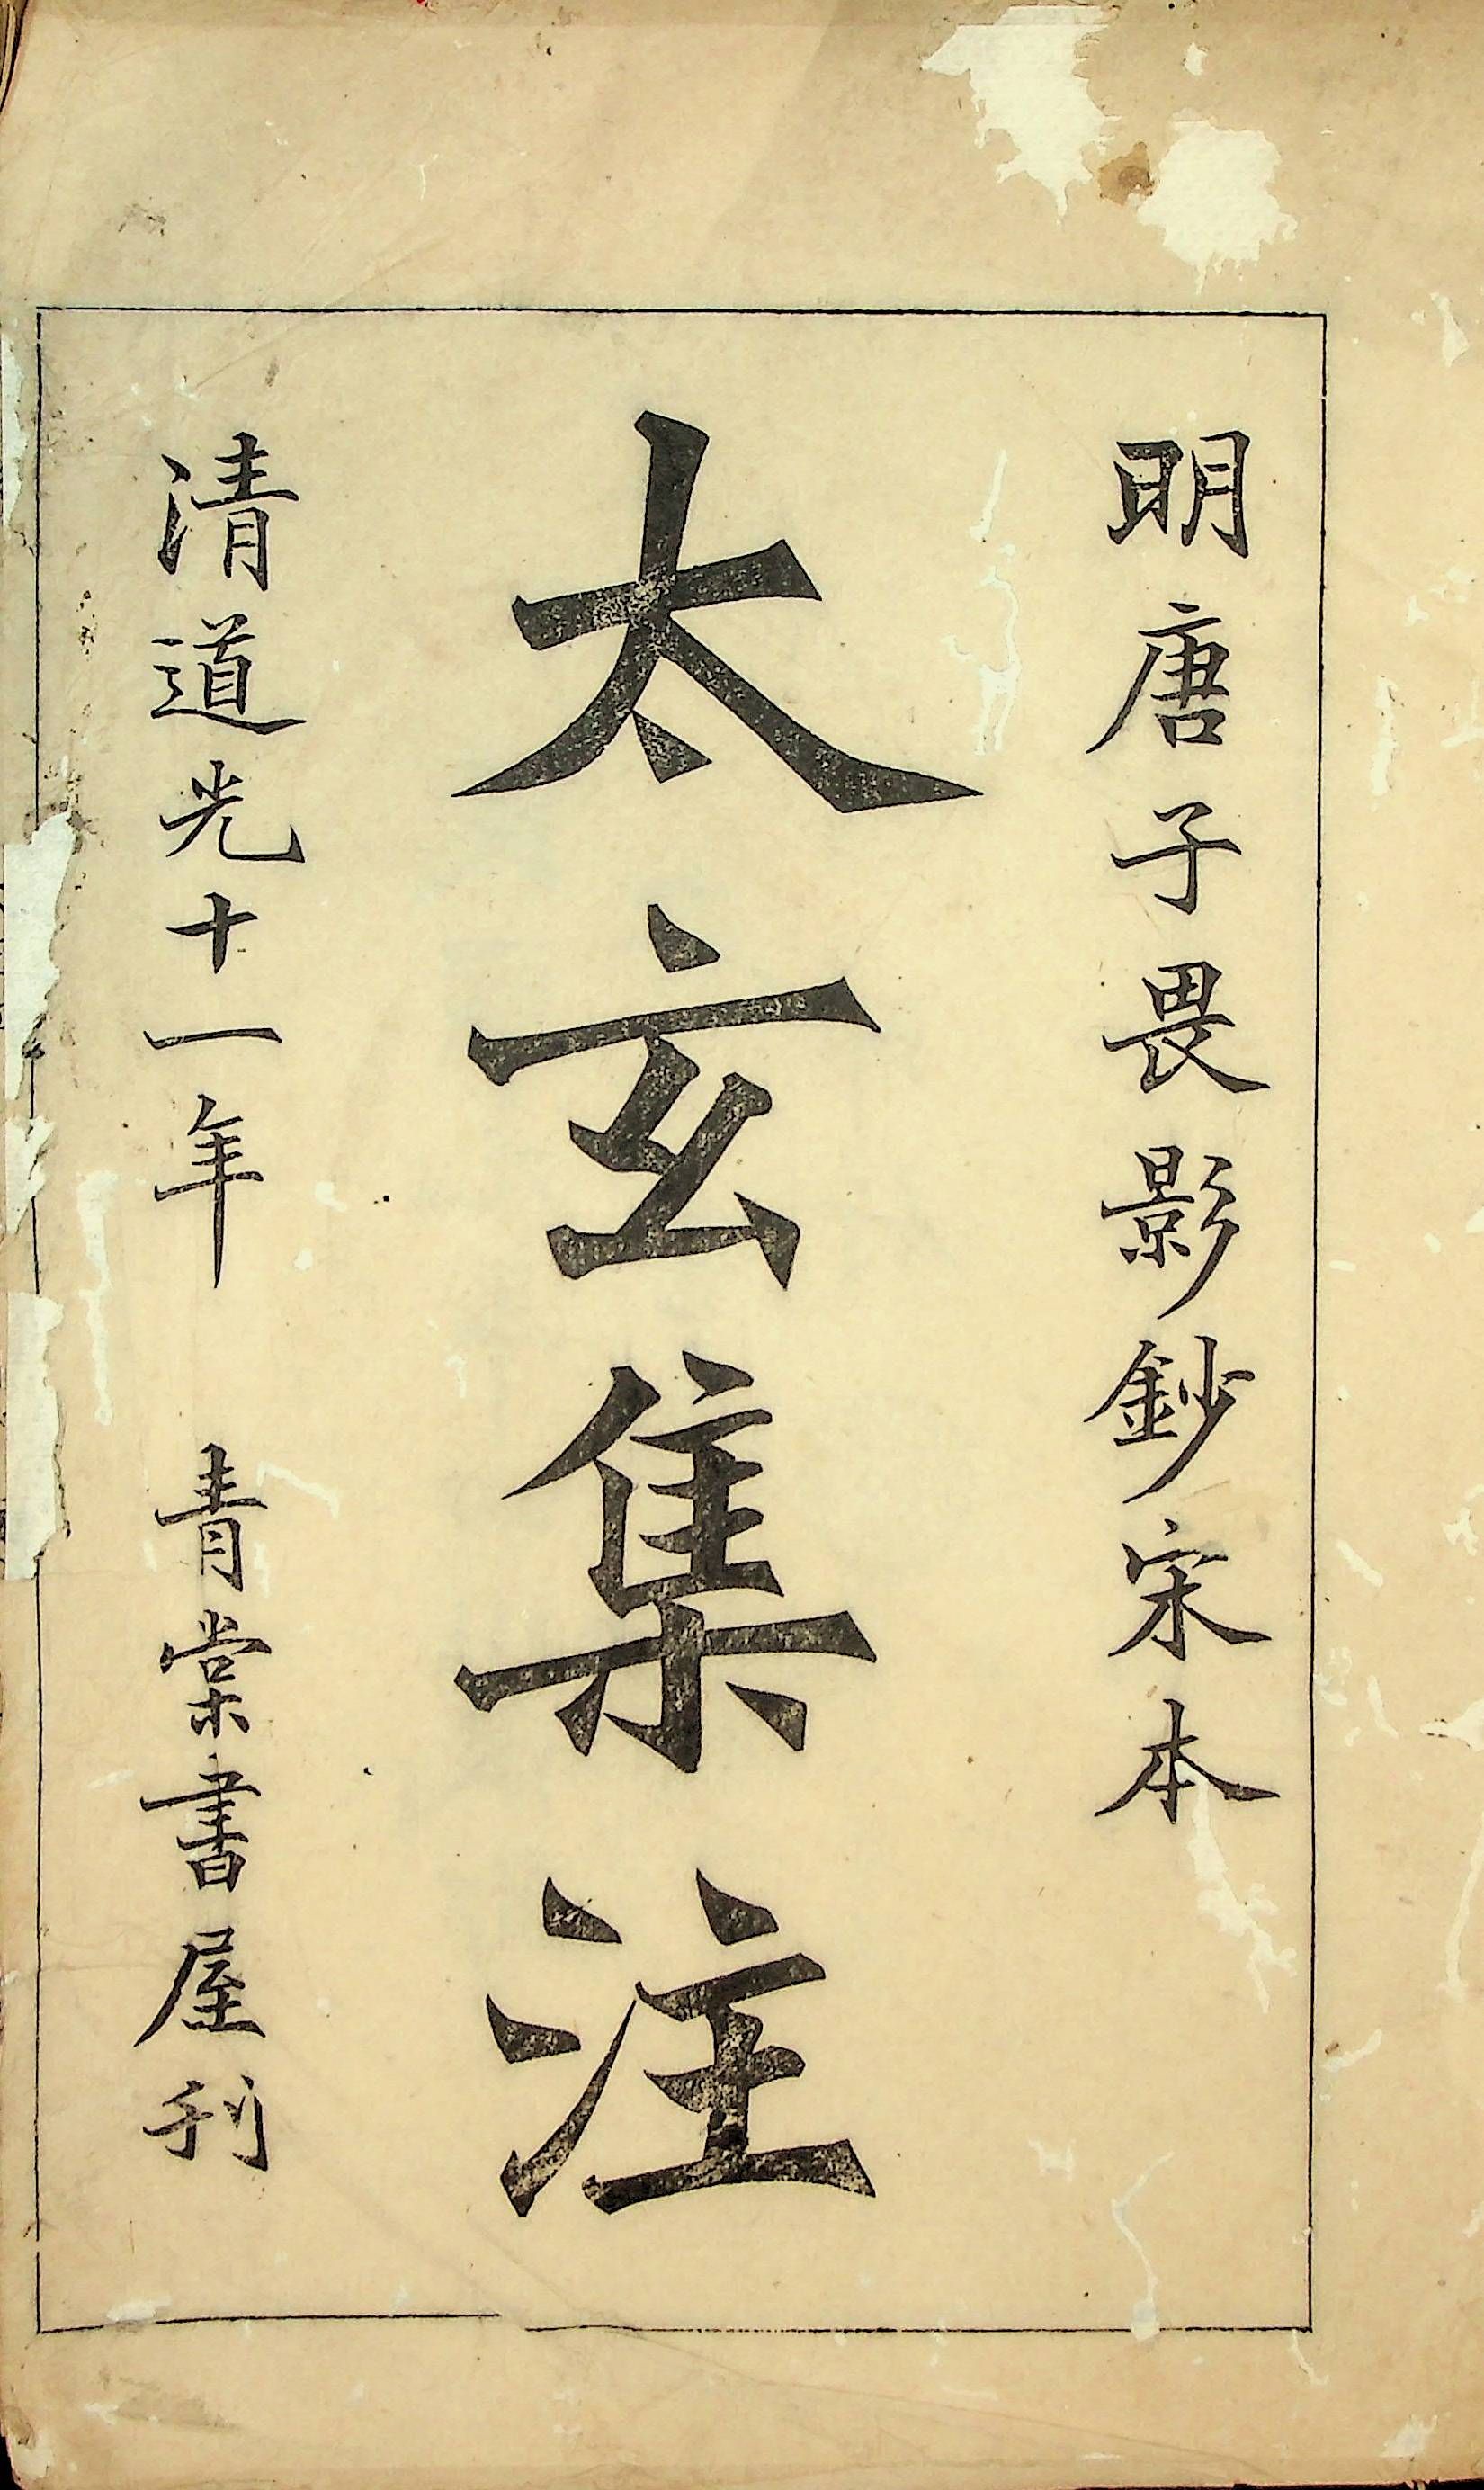 明唐子畏影鈔宋本
太玄集注
清道光十一年 青棠書屋刊